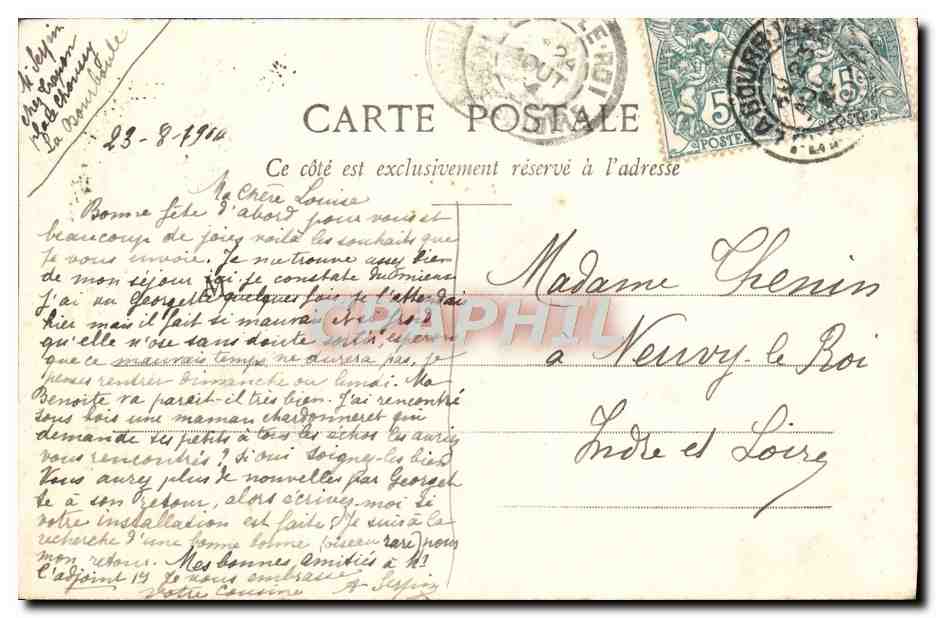 chez
La Bourboule
23-8-1904
CARTE POSTALE
Ce côté est exclusivement réservé à l'adresse
5
POSTES
5
POSTES
LA BOURBOULE
Ma Chère Louise
Bonne fête d'abord pour vous et
beaucoup de joies voilà les souhaits que
je vous envoie. Je me trouve assez bien
de mon séjour ici je constate du mieux
J'ai vu Georgette quelques fois je l'attendais
hier mais il fait si mauvais et si froid
qu'elle n'ose sans doute sortir, espérons
que ce mauvais temps ne durera pas, je
penses rentrer dimanche ou lundi. Ma
Benoite va parait-il très bien. J'ai rencontré
sous bois une maman chardonneret qui
demande ses petits à tous les échos les auriez
vous rencontrés ? si oui soignez-les bien
Vous aurez plus de nouvelles par Georget
te à son retour, alors écrivez-moi si
votre installation est faite. Je suis à la
recherche d'une bonne bonne (oiseau rare) pour
mon retour. Mes bonnes amitiés à Mr
l'adjoint Je vous embrasse
Votre cousine A Serpin
Madame Thenin
à Neuvy-le Roi
Indre et Loire
CPAPHIL